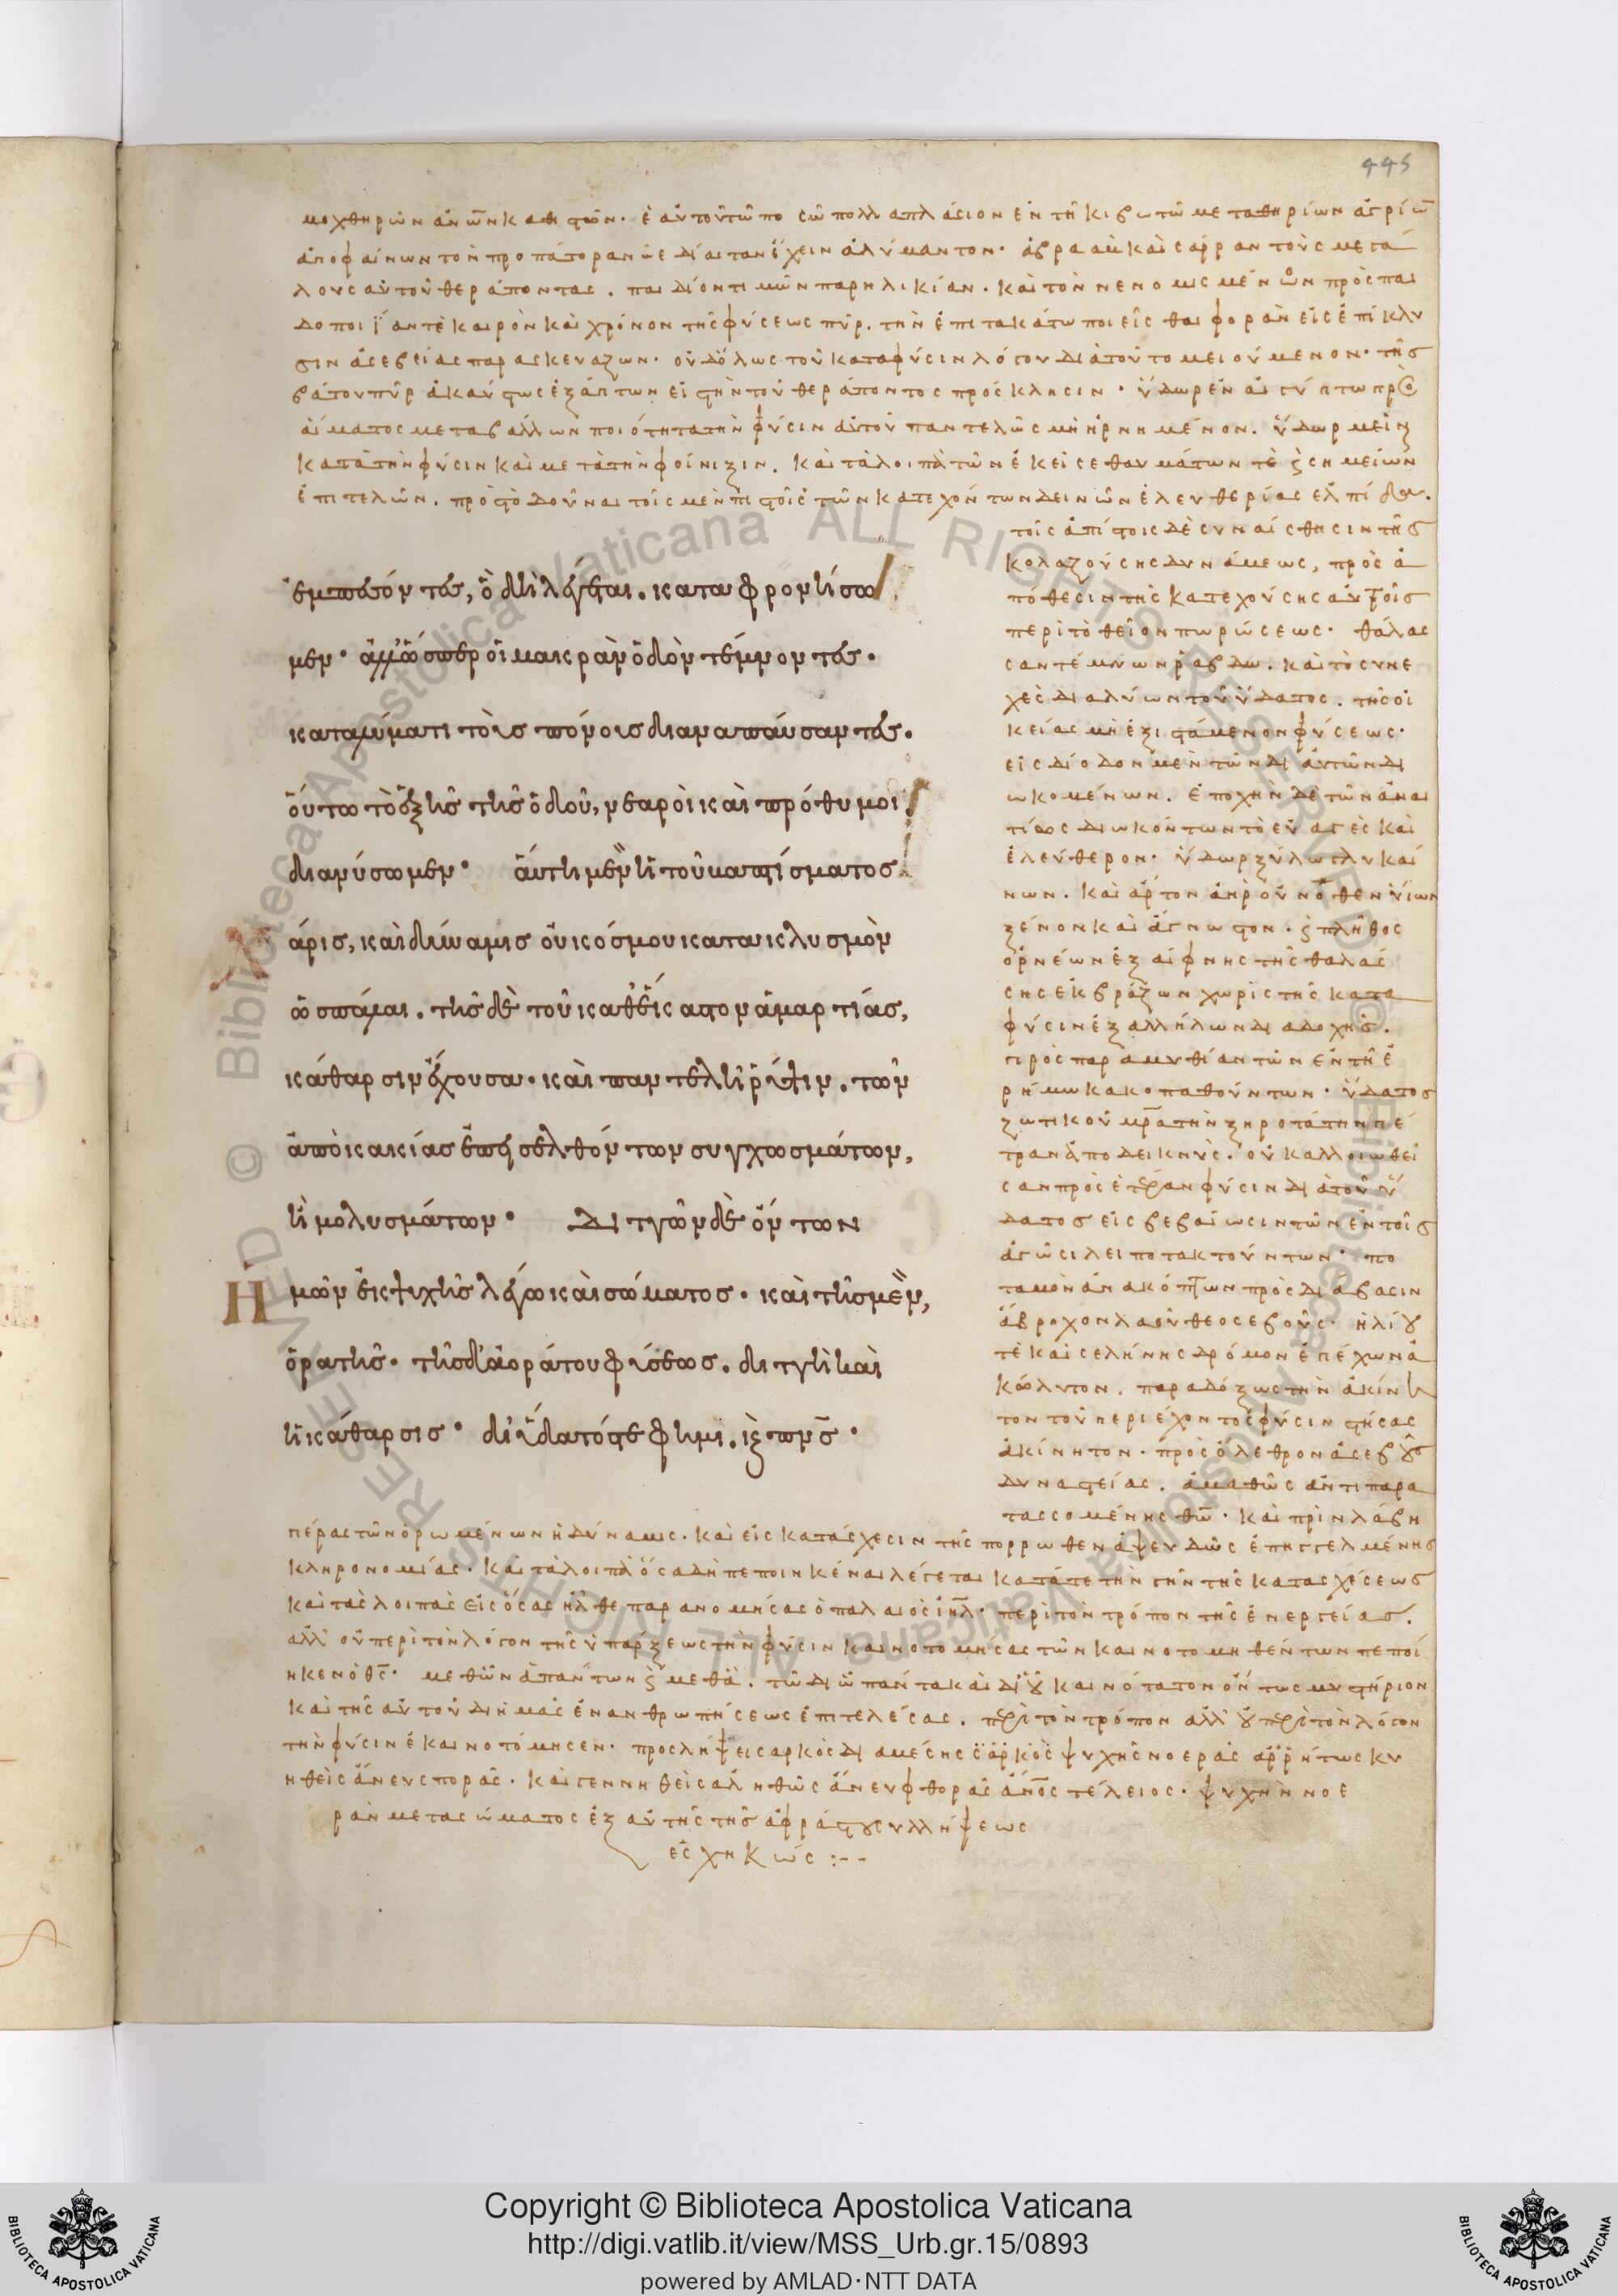 445
μοχθηρῶν ἀνῶν καθιστῶν· ἑαυτοῦ τῶ ποσῶ πολλαπλάσιον ἐν τῆ κιβωτῶ μετα θηρίων ἀγρίω̅
ἀποφαίνων τὸν προπάτορα νῶε δίαιταν ἔχειν ἀλύμαντον· ἀβραὰμ καὶ σάρραν τοὺς μεγά
λους αὐτοῦ θεράποντας. παιδίον τιμῶν παρηλικίαν. καὶ τὸν νενομισμένον πρὸς παι
δοποιΐαν τὲ καιρὸν καὶ χρόνον τῆς φύσεως πῦρ. τὴν ἐπι τα κάτω ποιεῖσθαι φορὰν εἰς ἐπίκλυ
σιν ἀσεβείας παρασκευάζων· οὐδόλως τοῦ κατα φύσιν λόγου διὰ τοῦτο μειούμενον· τῆς
βάτου πῦρ ἀκαύστως ἐξάπτων εἰς τὴν τοῦ θεράποντος πρόσκλησιν· ὕδωρ ἐν αἰγύπτω πρὸς
αἵματος μεταβάλλων ποιότητα τὴν φύσιν αὐτοῦ παντελῶς μὴ ἠρνημένον. ὕδωρ μεῖναν
κατὰ τὴν φύσιν καὶ μετὰ τὴν φοίνιξιν. καὶ τὰ λοιπὰ τῶν ἐκεῖσε θαυμάτων τὲ ϗ σημείων
ἐπιτελῶν. πρὸς τὸ δοῦναι τοῖς μὲν πιστοῖς τῶν κατεχόντων δεινῶν ἐλευθερίας ἐλπίδα.
τοῖς ἀπίστοις δὲ συναίσθησιν τῆς
κολαζούσης δυνάμεως, πρὸς ἀ
πόθεσιν τῆς κατεχούσης αὐτοῖς
περὶ τὸ θεῖον πωρώσεως· θάλασ
σαν τέμνων ῥάβδω. καὶ τὸ συνε
χὲς διαλύων τοῦ ὕδατος. τῆς οἰ
κείας μὴ ἐξιστάμενον φύσεως·
εἰς δίοδον μὲν τῶν δι αὐτὸν δι
ωκομένων. ἐποχὴν δὲ τῶν ἀναι
τίως διωκόντων τὸ εὐγενὲς καὶ
ἐλεύθερον· ὕδωρ ξύλω γλυκαί
νων. καὶ ἄρτον ἀπ' οὐνοθεν ὑίων
ξένον καὶ ἄγνωστον. ϗ πλῆθος
ὀρνέων ἐξαίφνης τῆς θαλάσ
σης ἐκβράζων χωρὶς τῆς κατα
φύσιν ἐξ ἀλλήλων διαδοχῆς.
πρὸς παραμυθίαν τῶν ἐν τῆ ἐ
ρήμω κακοπαθούντων· ὕδατος
ζωτικοῦ μρ̅α τὴν ξηροτάτην πέ
τραν ἀποδεικνὺς. οὐκ ἀλλοιωθεῖ
σαν πρὸς ἑτέραν φύσιν διὰ τοῦ ὕ
δατος εἰς βεβαίωσιν τῶν ἐν τοῖς
ἀγῶσι λειποτακτούντων· πο
ταμὸν ἀνακόπτων πρὸς διάβασιν
ἄβροχον λαοῦ θεοσεβοῦς· ἡλίου
τὲ καὶ σελήνης δρόμον ἐπέχων ἀ
κώλυτον. παραδόξως τὴν ἀκίνη
τον τοῦ περιέχοντος φύσιν στήσας
ἀκίνητον. πρὸς ὄλεθρον ἀσεβοῦς
δυναστείας. ἀμαθῶς ἀντιπαρα
τασσομένης θῶ̅· καὶ πρὶν λάβη
ἐμπεσόντες, ὃ δὴ λέγεται. καταφροντίσω
μεν· ἀλλ' ὥσπερ οἱ μακρὰν ὁδὸν τέμνοντες.
καταλύματι τοὺς πόνους διαναπαύσαντες.
οὕτω τὸ ἑξῆς τῆς ὁδοῦ, νεαροὶ καὶ πρόθυμοι
διανύσωμεν· αὕτη μὲν ἡ τοῦ βαπτίσματος
χάρις, καὶ δύναμις οὐ κόσμου κατακλυσμὸν
ὡς πάλαι. τῆς δὲ τοῦ καθέκαστον ἁμαρτίας,
κάθαρσιν ἔχουσα· καὶ παντελῆ ῥύψιν. τῶν
ἀπὸ κακίας ἐπεισελθόντων συγχωσμάτων,
ἢ μολυσμάτων· Διττῶν δὲ ὄντων
ἡμῶν ἐκ ψυχῆς λέγω καὶ σώματος· καὶ τῆς μὲν,
ὁρατῆς· τῆς δ' ἀοράτου φύσεως. διττὴ καὶ
ἡ κάθαρσις· δι' ὕδατός τε φημι. ϗ πν̅ς·
πέρας τῶν ὁρωμένων ἡ δύναμις. καὶ εἰς κατάσχεσιν τῆς πορρωθεν ἀψευδῶς ἐπηγγελμένης
κληρονομίας. καὶ τὰ λοιπὰ ὅσα δὴ πεποιηκέναι λέγεται κατά τε τὴν γῆν τῆς κατασχέσεως
καὶ τὰς λοιπὰς εἰς ὅσας ἦλθε παρανομήσας ὁ παλαιὸς ἰη̅λ· περὶ τὸν τρόπον τῆς ἐνεργείας.
ἀλλ' οὐ περὶ τὸν λόγον τῆς ὑπάρξεως τὴν φύσιν καινοτομήσας τῶν καινοτομηθέντων πεποί
ηκεν ὁ θς̅· μεθ' ὧν ἁπάντων ϗ μεθ' ἃ. τῶ δι' ὃ πάντα καὶ δι' οὗ καινότατον ὄντως μυστήριον
καὶ τῆς αὐτοῦ δι ἡμᾶς ἐνανθρωπήσεως ἐπιτελέσας. περὶ τὸν τρόπον ἀλλ' οὐ περὶ τὸν λόγον
τὴν φύσιν ἐκαινοτόμησεν· προσλήψει σαρκὸς δια μέσης σαρκὸς ψυχῆς νοερᾶς ἀρρήτως κυ
ηθεὶς ἄνευ σπορᾶς. καὶ γεννηθεὶς ἀληθῶς ἄνευ φθορᾶς ἄνο̅ς τέλειος· ψυχὴν νοε
ρὰν μετα σώματος ἐξ αὐτῆς τῆς ἀφράστου συλλήψεως
ἐσχηκώς :--
RESERVED © Biblioteca Apostolica Vaticana ALL RIGHTS RESERVED © Biblioteca Apostolica Vaticana ALL RIGHTS
Copyright © Biblioteca Apostolica Vaticana
http://digi.vatlib.it/view/MSS_Urb.gr.15/0893
powered by AMLAD·NTT DATA
BIBLIOTECA APOSTOLICA VATICANA
BIBLIOTECA APOSTOLICA VATICANA